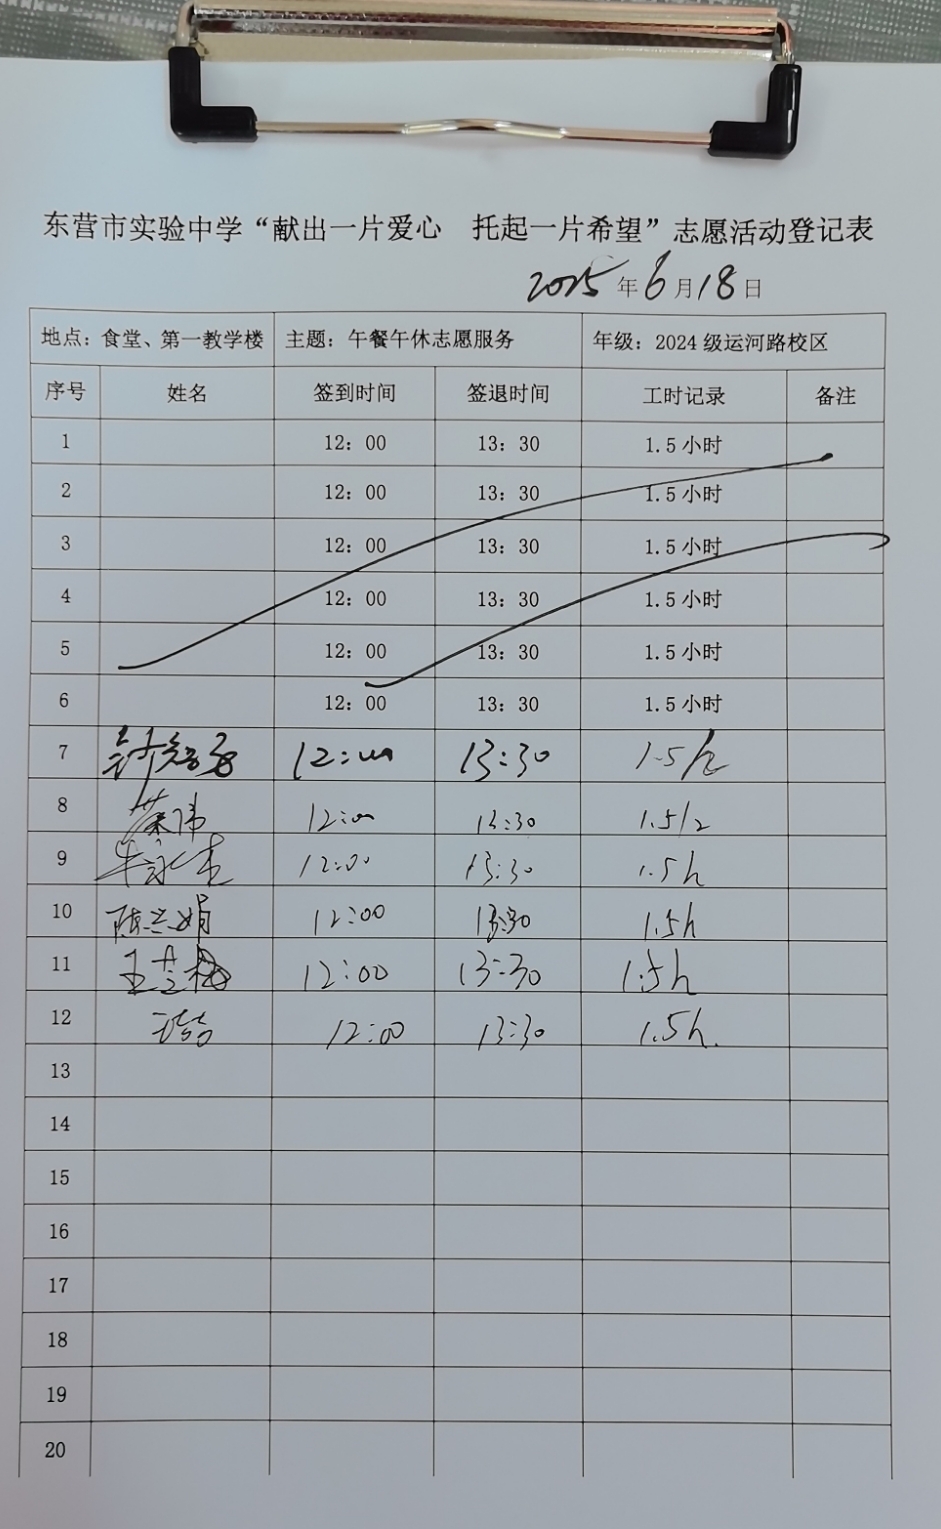 东营市实验中学“献出一片爱心 托起一片希望”志愿活动登记表
2025年6月18日
地点：食堂、第一教学楼 主题：午餐午休志愿服务 年级：2024级运河路校区
序号 姓名 签到时间 签退时间 工时记录 备注
1 12：00 13：30 1.5小时
2 12：00 13：30 1.5小时
3 12：00 13：30 1.5小时
4 12：00 13：30 1.5小时
5 12：00 13：30 1.5小时
6 12：00 13：30 1.5小时
7 12:00 13:30 1.5h
8 12:00 13:30 1.5h
9 12:00 13:30 1.5h
10 陈兰娟 12:00 13:30 1.5h
11 王芝梅 12:00 13:30 1.5h
12 12:00 13:30 1.5h.
13
14
15
16
17
18
19
20